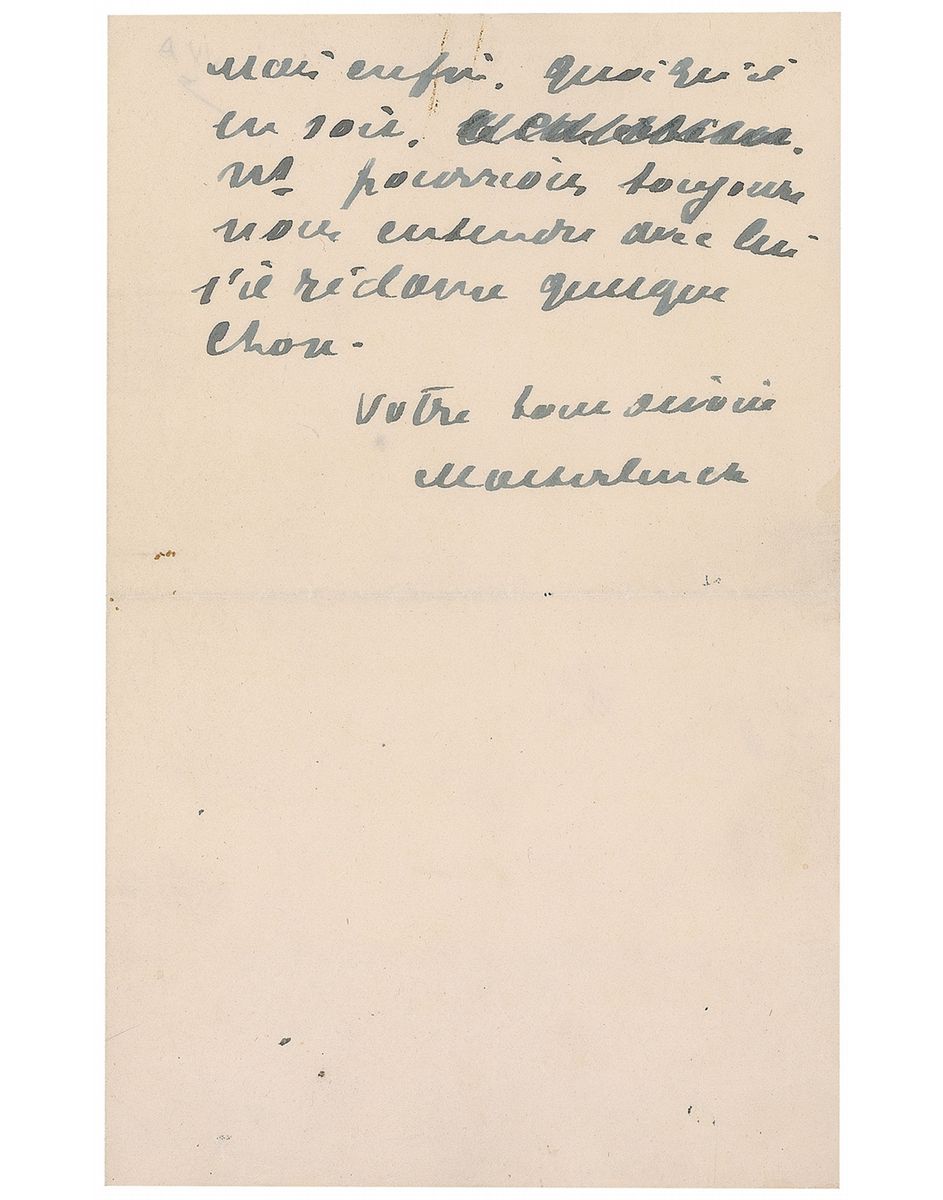 Mais enfin, quoiqu'il
en soit,
ns pourrions toujours
nous entendre avec lui
s'il réclame quelque
chose -
Votre tout dévoué
Maeterlinck